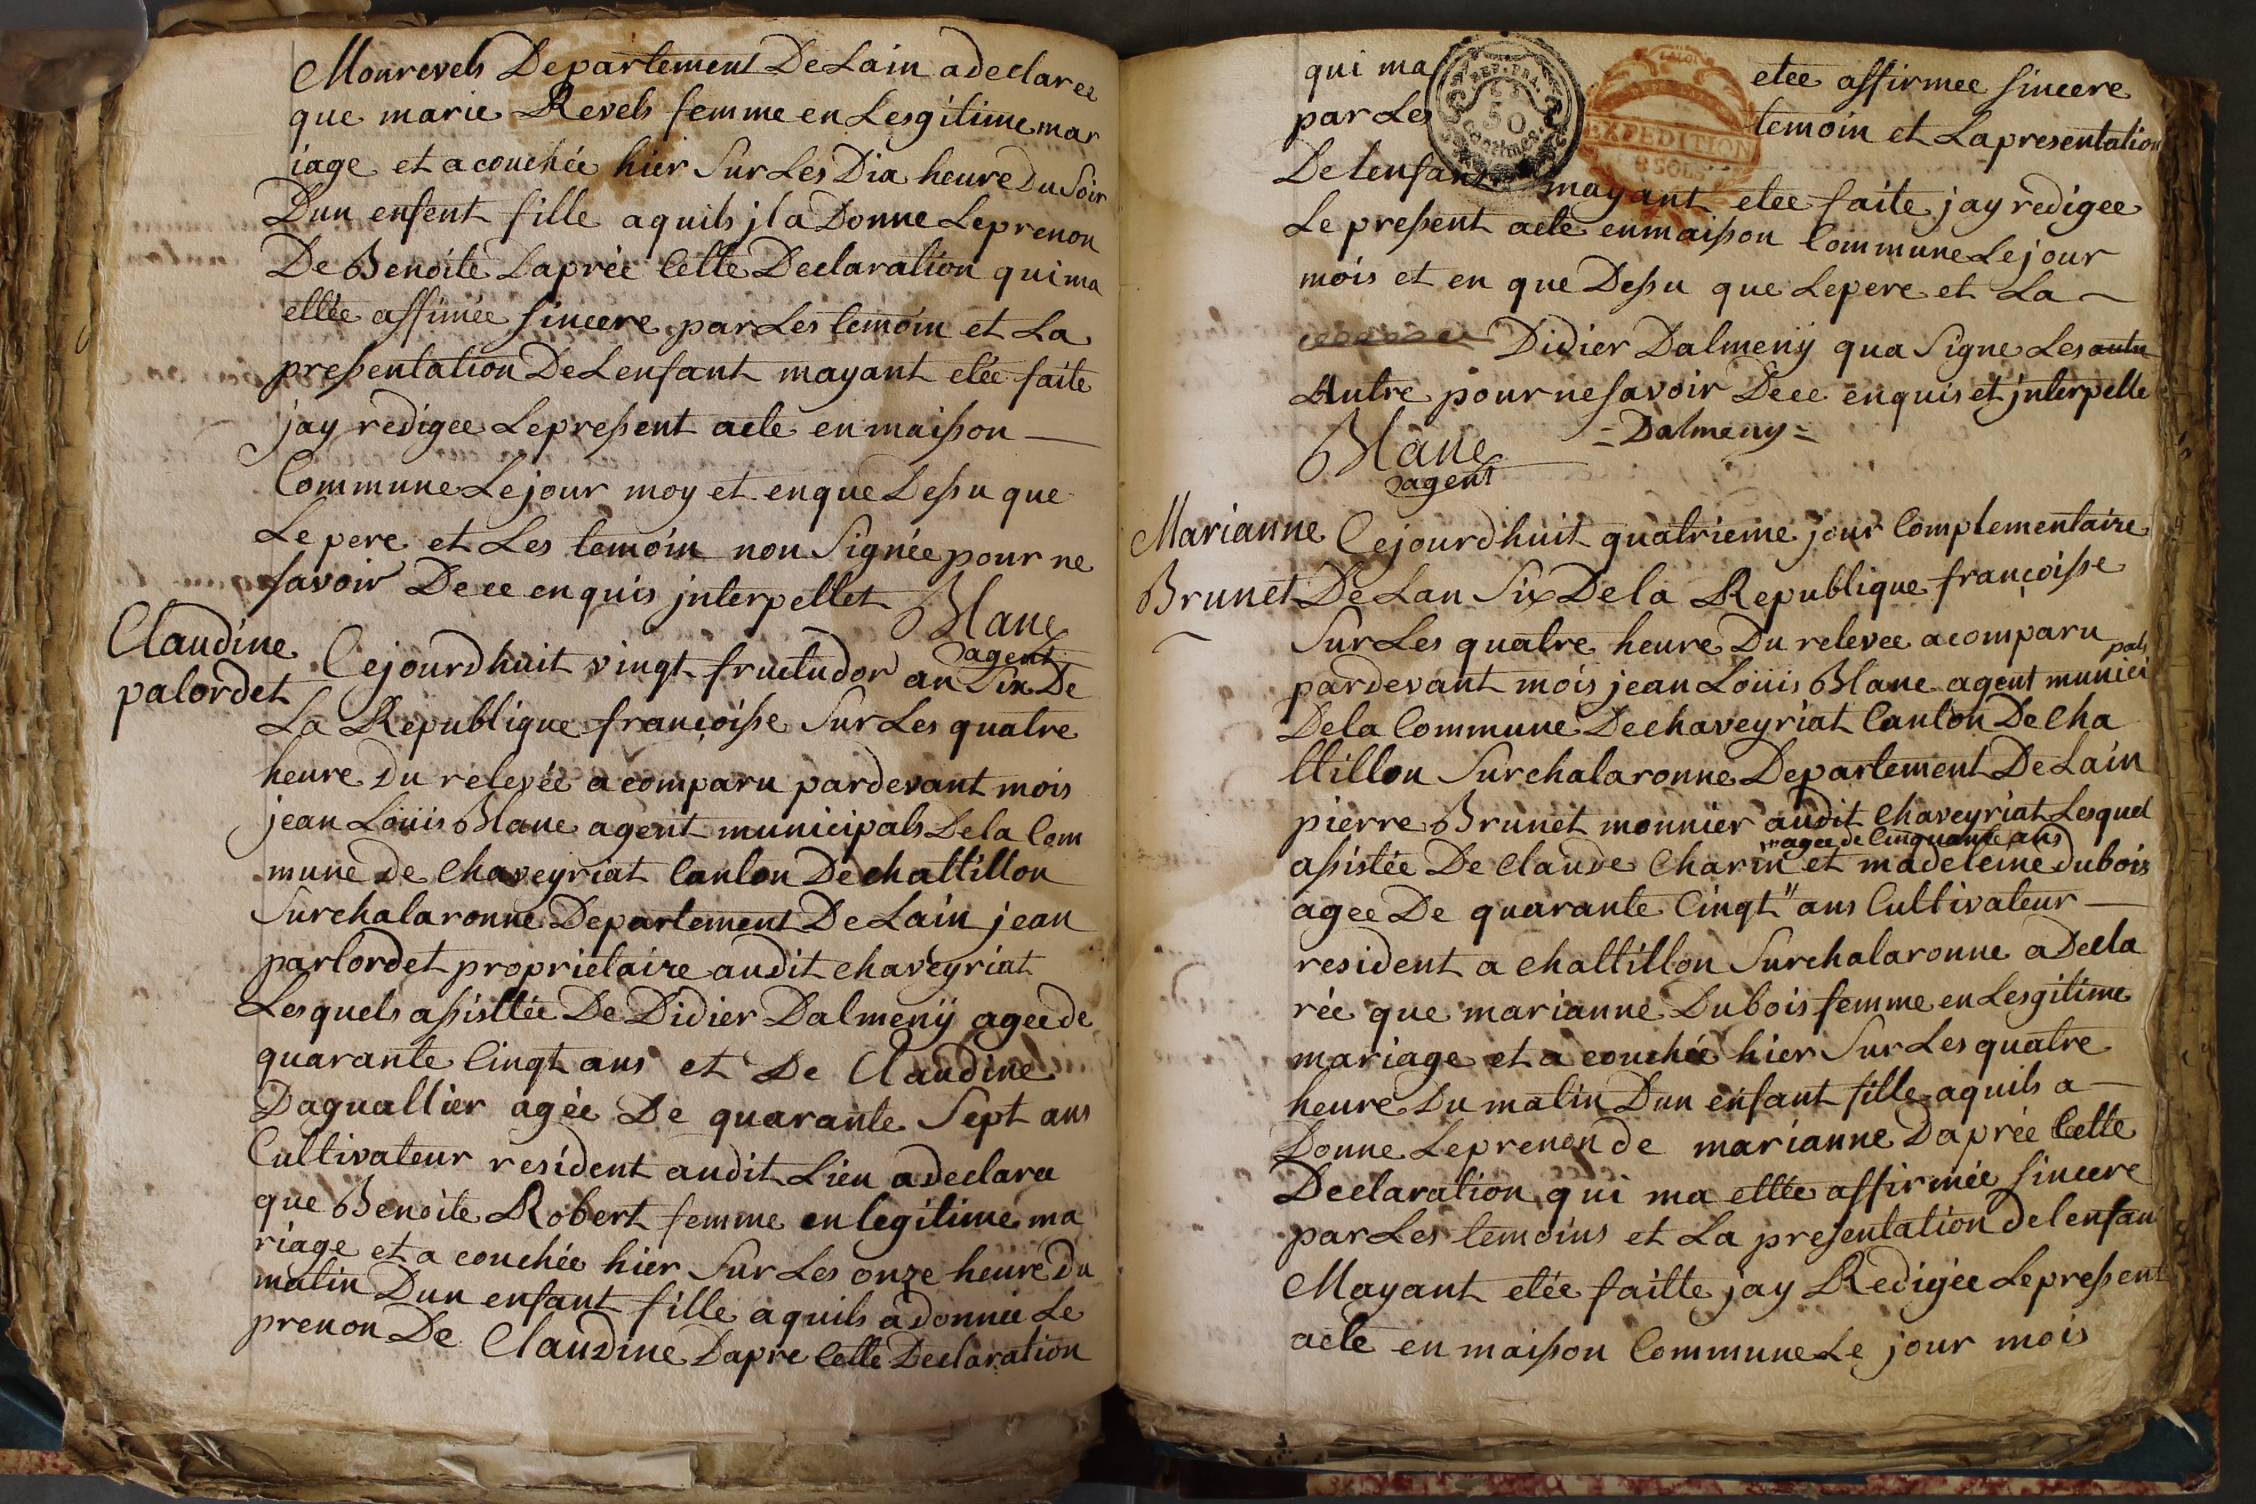 Monrevels Departement De Lain a declaree
que marie Revels femme en Lesgitime mar
iage et a couchée hier Sur Les Dix heure Du Soir
Dun enfent fille a quils jl a Donne Leprenon
De Benoite Daprée Cette Declaration qui ma
ettée affimée sincere par Les temoin et La
pressentation De Lenfant mayant etée faite
jay redigee Lepressent acte en maisson
Commune Le jour moy et en que Dessu que
Le pere et Les temoin non Signée pour ne
savoir De ce enquis jnterpellet
Blanc
agent
Claudine
palordet
Cejourdhuit vingt fructudor an Six De
La Republique françoisse Sur Les quatre
heure du relevée a comparu pardevant mois
jean Loüis Blanc agent municipals De la Com
mune de Chaveyriat Canton De chattillon
Surchalaronne Departement De Lain jean
parlordet proprietaire audit chaveyriat
Lesquels assisttée De Didier Dalmenÿ agee de
quarante Cinqt ans et De Claudine
Daguallier agée De quarante Sept ans
Cultivateur resident audit Lieu a declaree
que Benoite Robert femme en legitime ma
riage et a couchée hier Sur Les onze heure du
matin Dun enfant fille a quils a donnée Le
prenon De Claudine Dapre Cette Declaration
qui ma etee affirmee sincere
par Les temoin et La presentation
De Lenfant mayant etee faite jay redigee
Le pressent acte en maisson Commune Le jour
mois et en que Dessu que Lepere et La
Didier Dalmenÿ qua Signe Les autre
Autre pour ne savoir De ce enquis et jnterpelle
= Dalmeny =
Blanc
agent
REP. FRA.
50
Centimes
EXPEDITION
8 SOLS
Marianne
Brunet
Cejourdhuit quatrieme jour Complementaire
De Lan Six De la Republique françoisse
Sur Les quatre heure Du relevee a comparu
pardevant mois jean Loüis Blanc agent munici
pals
De la Commune De chaveyriat Canton De Cha
ttillon Surchalaronne Departement De Lain
pierre Brunet monnier audit Chaveyriat Lesquel
agee de Cinquante ans
assistée De Claude Charin et madeleine dubois
agee De quarante Cinqt" ans Cultivateur
resident a Chattillon Surchalaronne a Decla
rée que marianne Dubois femme en Lesgitime
mariage et a couchée hier Sur Les quatre
heure Du matin Dun enfant fille a quils a
Donne Le prenon de marianne Daprée Cette
Declaration qui ma ettée affirmée sincere
par Les temoins et La presentation de lenfan
Mayant etée faitte jay Redigée Lepressent
acte en maisson Commune Le jour mois